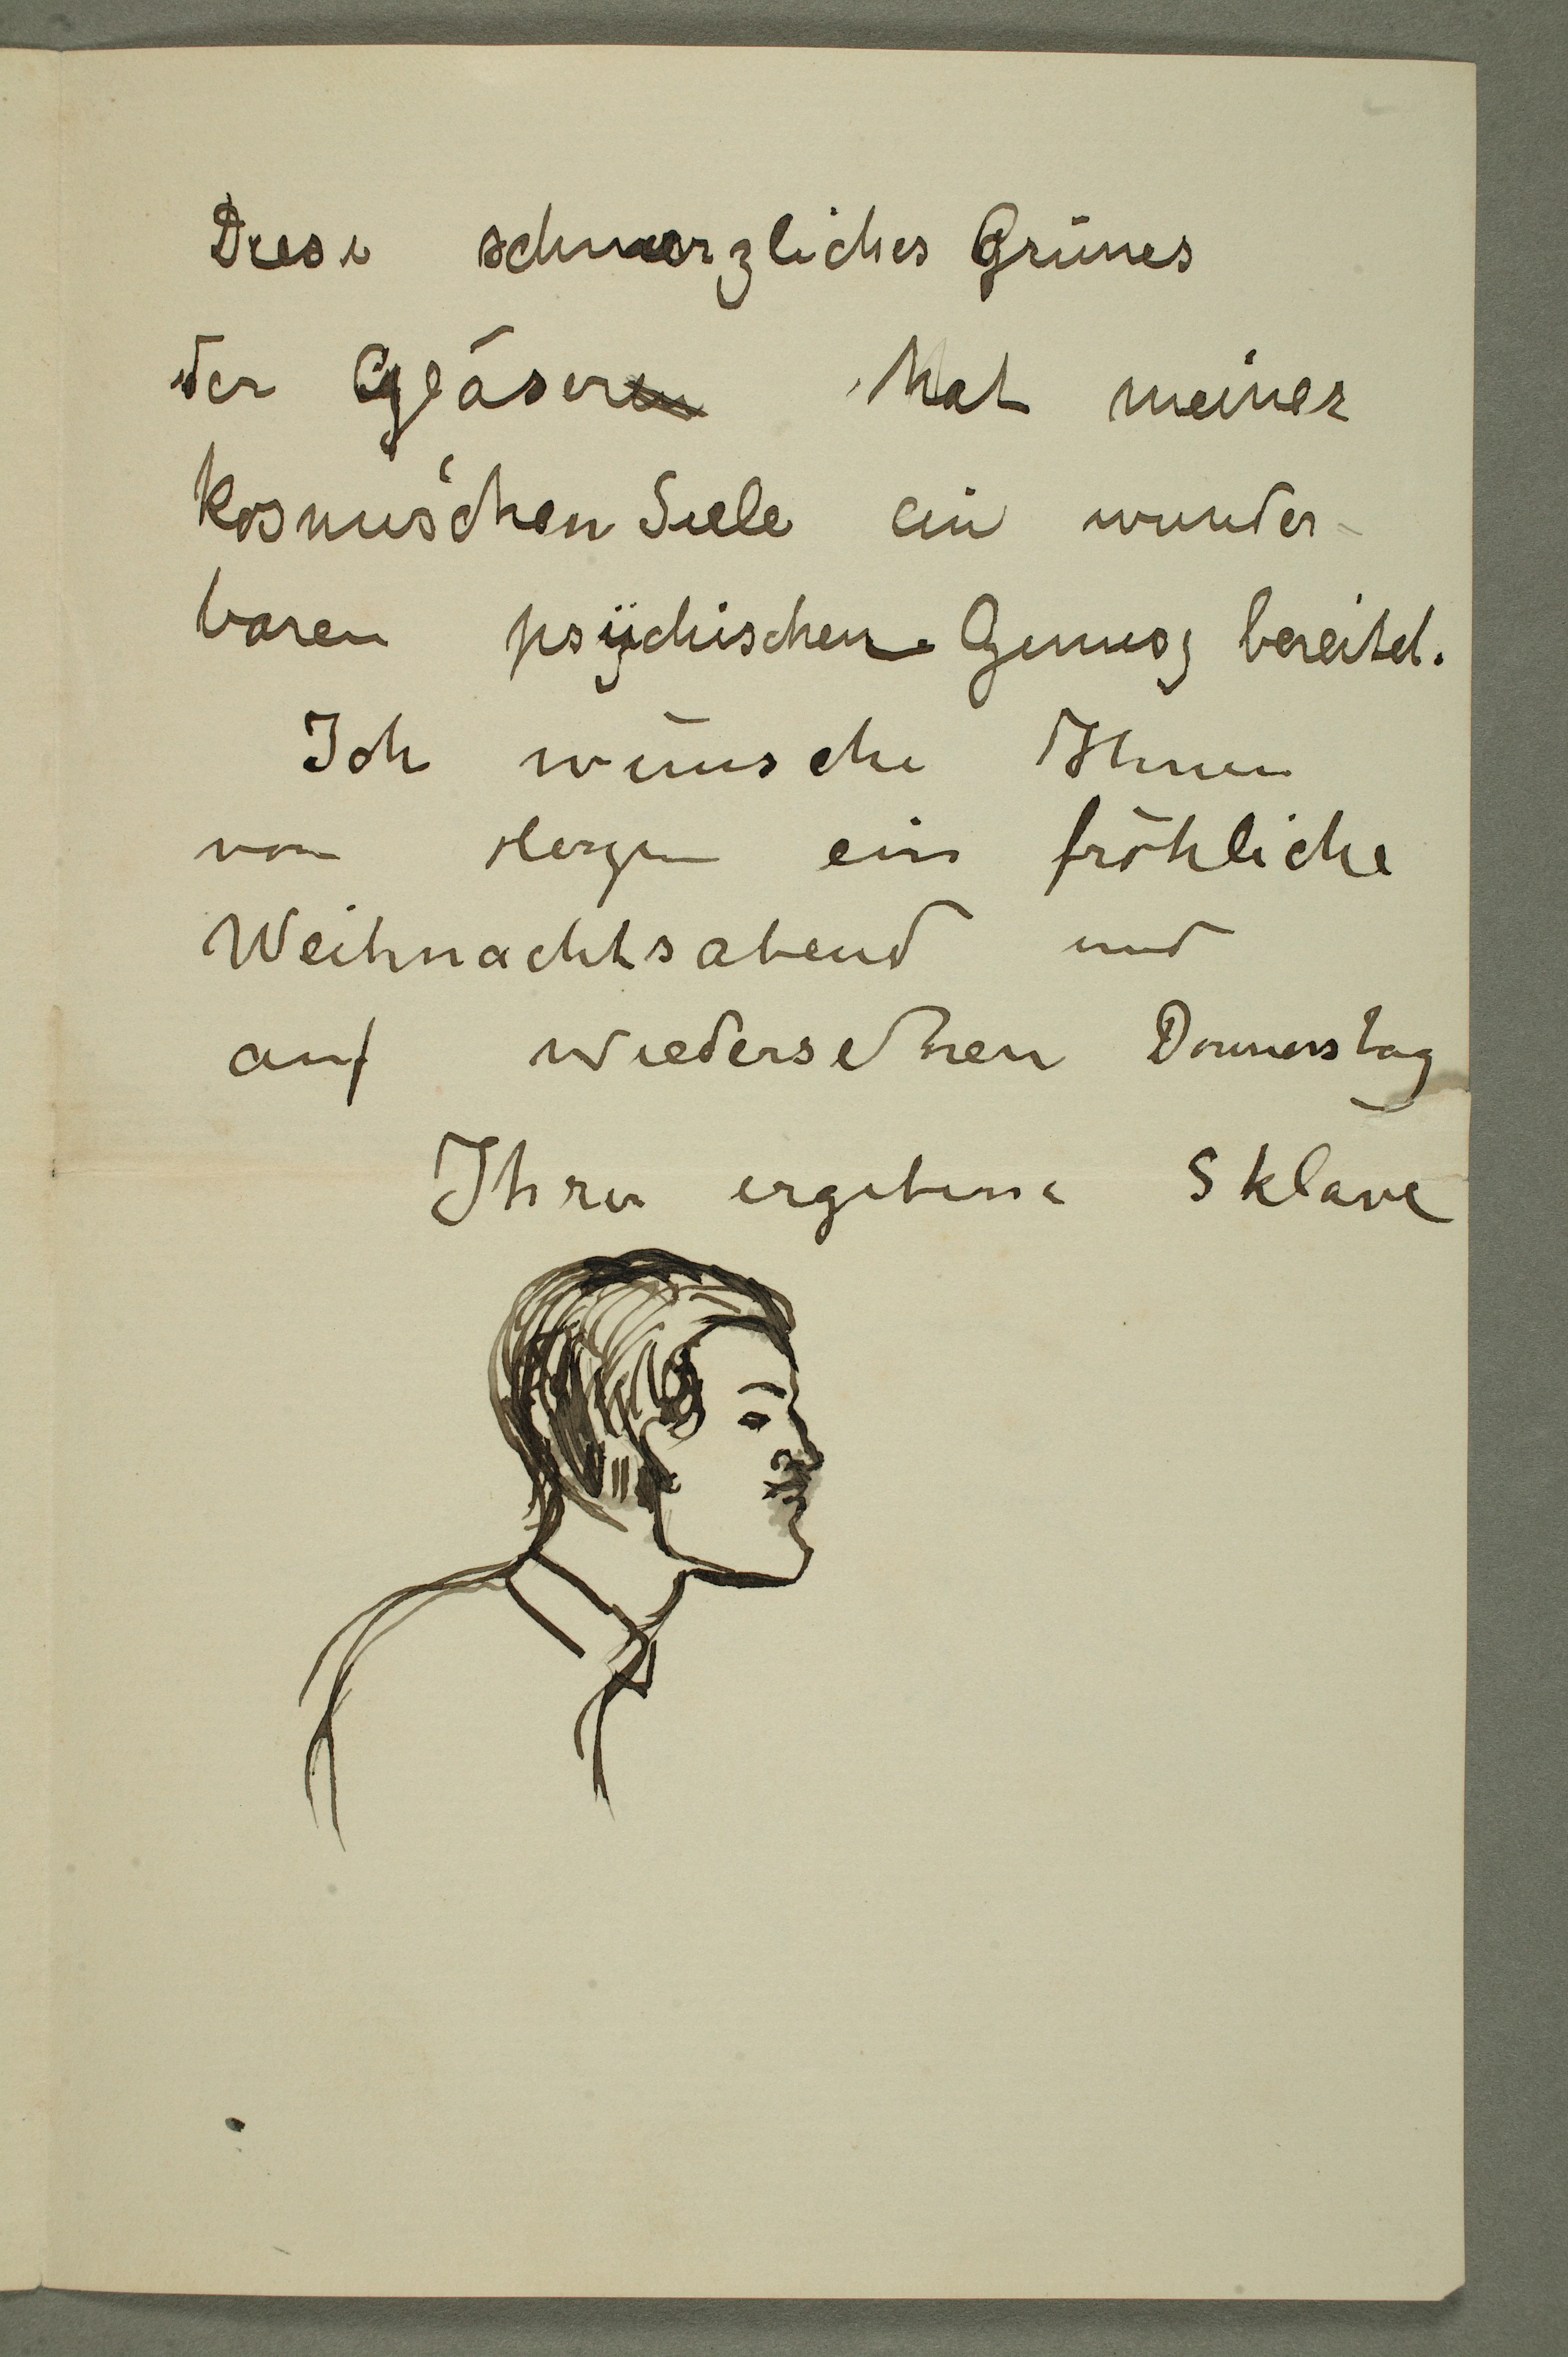 Diese schmerzliches Grünes
der Gläser hat meiner
kosmischen Seele ein wunder-
baren psÿchischen Genusz bereitet.
Ich wünsche Ihnen
von Herzen ein fröhliche
Weihnachtsabend und
auf wiedersehen Donnerstag
Ihre ergebene Sklave